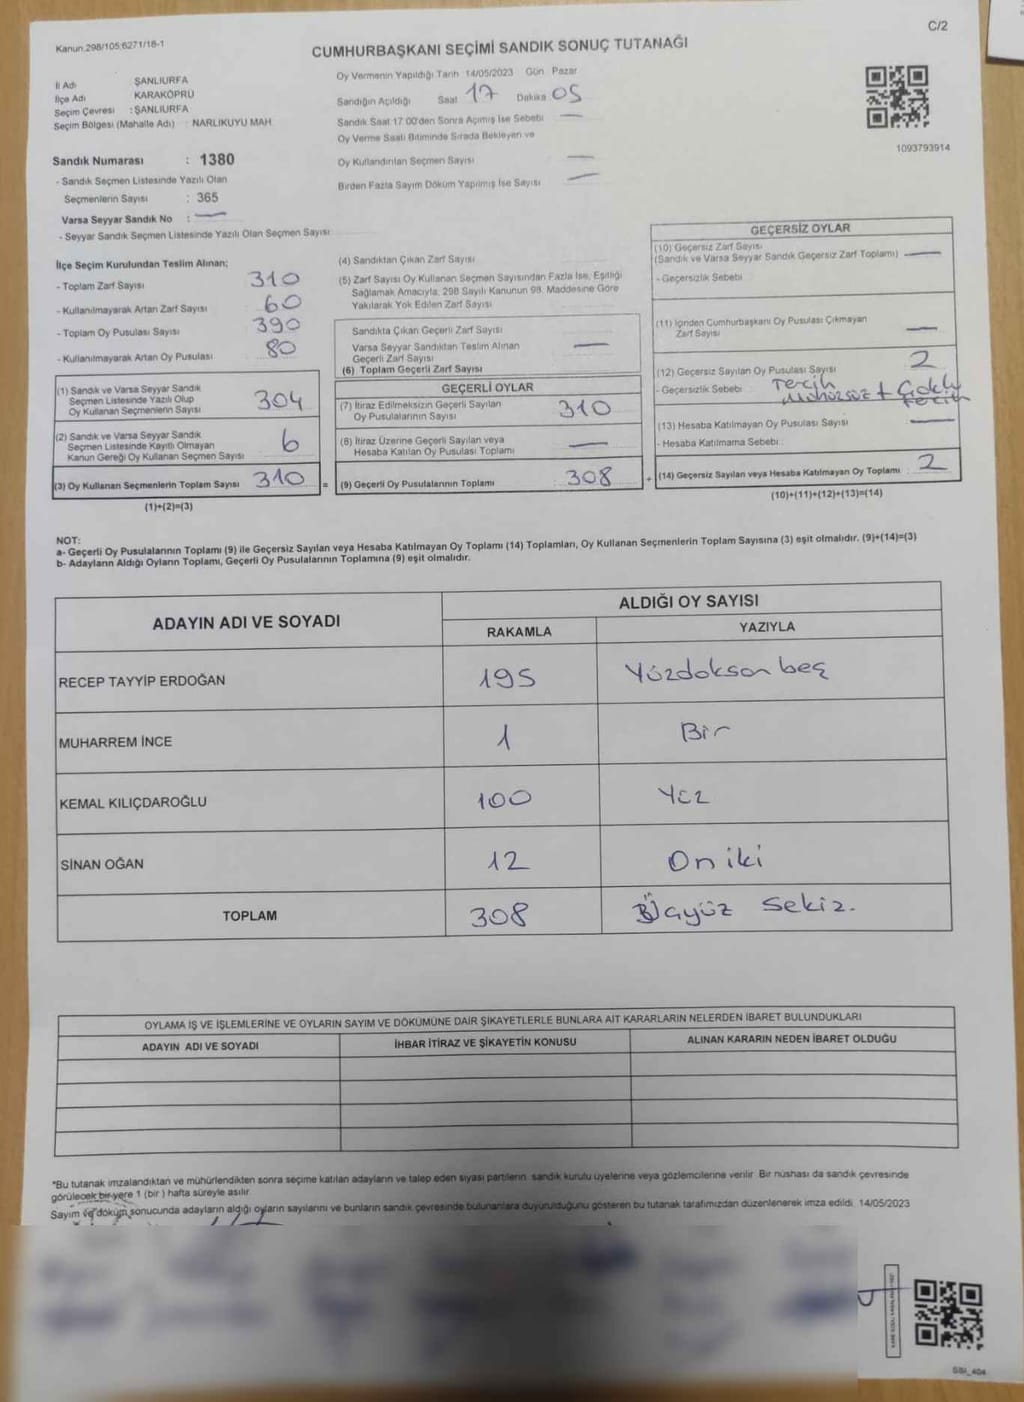 C/2
Kanun 298/105;6271/18-1
CUMHURBAŞKANI SEÇİMİ SANDIK SONUÇ TUTANAĞI
İl Adı ŞANLIURFA
İlçe Adı KARAKÖPRÜ
Seçim Çevresi : ŞANLIURFA
Seçim Bölgesi (Mahalle Adı) : NARLIKUYU MAH.
Oy Vermenin Yapıldığı Tarih 14/05/2023 Gün Pazar
Sandığın Açıldığı Saat 17 Dakika 05
Sandık Saat 17:00'den Sonra Açılmış İse Sebebi —
Oy Verme Saati Bitiminde Sırada Bekleyen ve
Oy Kullandırılan Seçmen Sayısı —
Birden Fazla Sayım Döküm Yapılmış İse Sayısı —
1093793914
Sandık Numarası : 1380
- Sandık Seçmen Listesinde Yazılı Olan
Seçmenlerin Sayısı : 365
Varsa Seyyar Sandık No : —
- Seyyar Sandık Seçmen Listesinde Yazılı Olan Seçmen Sayısı
İlçe Seçim Kurulundan Teslim Alınan;
- Toplam Zarf Sayısı 310
- Kullanılmayarak Artan Zarf Sayısı 60
- Toplam Oy Pusulası Sayısı 390
- Kullanılmayarak Artan Oy Pusulası 80
(1) Sandık ve Varsa Seyyar Sandık
Seçmen Listesinde Yazılı Olup
Oy Kullanan Seçmenlerin Sayısı 304
(2) Sandık ve Varsa Seyyar Sandık
Seçmen Listesinde Kayıtlı Olmayan
Kanun Gereği Oy Kullanan Seçmen Sayısı 6
(3) Oy Kullanan Seçmenlerin Toplam Sayısı 310 =
(1)+(2)=(3)
(4) Sandıktan Çıkan Zarf Sayısı
(5) Zarf Sayısı Oy Kullanan Seçmen Sayısından Fazla İse, Eşitliği
Sağlamak Amacıyla, 298 Sayılı Kanunun 98. Maddesine Göre
Yakılarak Yok Edilen Zarf Sayısı
Sandıkta Çıkan Geçerli Zarf Sayısı
Varsa Seyyar Sandıktan Teslim Alınan
Geçerli Zarf Sayısı —
(6) Toplam Geçerli Zarf Sayısı
GEÇERLİ OYLAR
(7) İtiraz Edilmeksizin Geçerli Sayılan
Oy Pusulalarının Sayısı 310
(8) İtiraz Üzerine Geçerli Sayılan veya
Hesaba Katılan Oy Pusulası Toplamı —
(9) Geçerli Oy Pusulalarının Toplamı 308 +
GEÇERSİZ OYLAR
(10) Geçersiz Zarf Sayısı
(Sandık ve Varsa Seyyar Sandık Geçersiz Zarf Toplamı) —
- Geçersizlik Sebebi
(11) İçinden Cumhurbaşkanı Oy Pusulası Çıkmayan
Zarf Sayısı —
(12) Geçersiz Sayılan Oy Pusulası Sayısı 2
- Geçersizlik Sebebi : Tercih
Mühürsüz + Çoklu
Tercih
(13) Hesaba Katılmayan Oy Pusulası Sayısı —
- Hesaba Katılmama Sebebi :
(14) Geçersiz Sayılan veya Hesaba Katılmayan Oy Toplamı 2
(10)+(11)+(12)+(13)=(14)
NOT:
a- Geçerli Oy Pusulalarının Toplamı (9) ile Geçersiz Sayılan veya Hesaba Katılmayan Oy Toplamı (14) Toplamları, Oy Kullanan Seçmenlerin Toplam Sayısına (3) eşit olmalıdır. (9)+(14)=(3)
b- Adayların Aldığı Oyların Toplamı, Geçerli Oy Pusulalarının Toplamına (9) eşit olmalıdır.
ADAYIN ADI VE SOYADI ALDIĞI OY SAYISI
RAKAMLA YAZIYLA
RECEP TAYYİP ERDOĞAN 195 Yüzdoksan beş
MUHARREM İNCE 1 Bir
KEMAL KILIÇDAROĞLU 100 Yüz
SİNAN OĞAN 12 On iki
TOPLAM 308 Üçyüz Sekiz.
OYLAMA İŞ VE İŞLEMLERİNE VE OYLARIN SAYIM VE DÖKÜMÜNE DAİR ŞİKAYETLERLE BUNLARA AİT KARARLARIN NELERDEN İBARET BULUNDUKLARI
ADAYIN ADI VE SOYADI İHBAR İTİRAZ VE ŞİKAYETİN KONUSU ALINAN KARARIN NEDEN İBARET OLDUĞU
*Bu tutanak imzalandıktan ve mühürlendikten sonra seçime katılan adayların ve talep eden siyasi partilerin sandık kurulu üyelerine veya gözlemcilerine verilir. Bir nüshası da sandık çevresinde
görülecek bir yere 1 (bir ) hafta süreyle asılır.
Sayım ve döküm sonucunda adayların aldığı oyların sayılarını ve bunların sandık çevresinde bulunanlara duyurulduğunu gösteren bu tutanak tarafımızdan düzenlenerek imza edildi. 14/05/2023